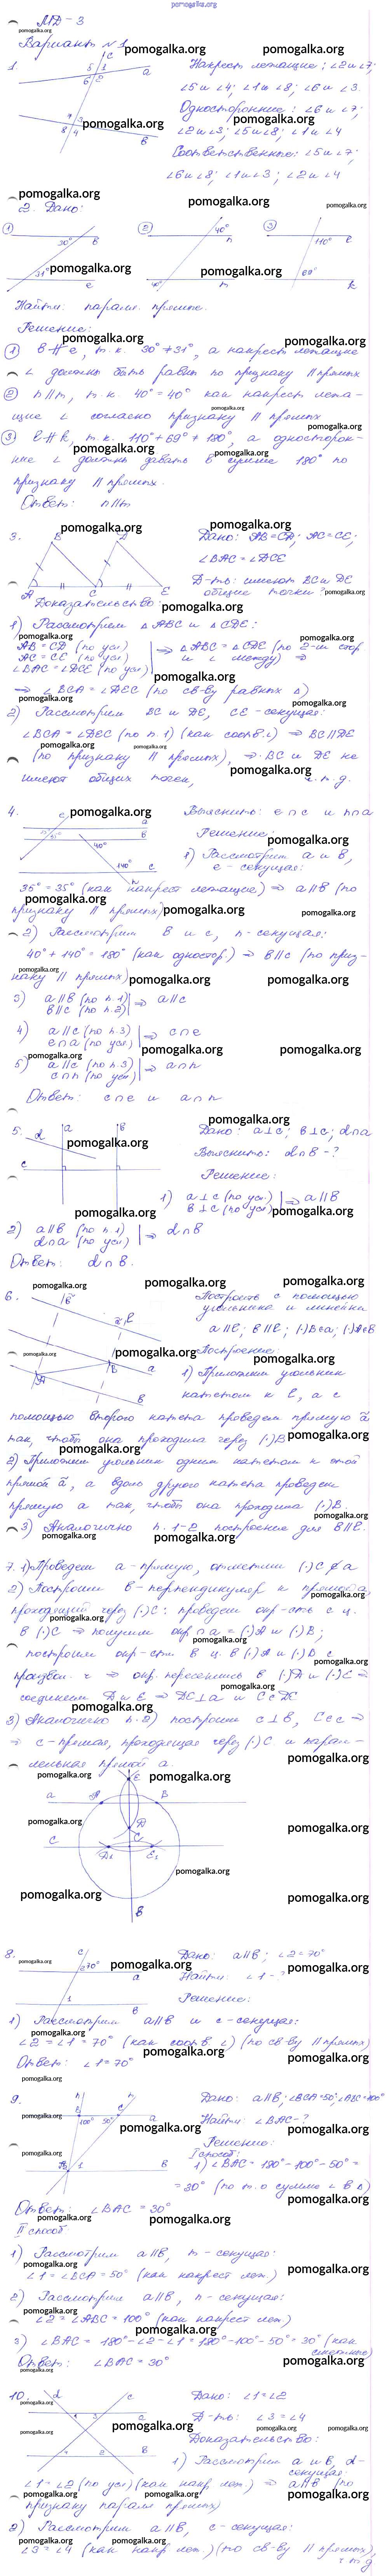 pomogalka.org
МД - 3
Вариант №1
1.
Накрест лежащие: ∠2 и ∠7;
∠5 и ∠4; ∠1 и ∠8; ∠6 и ∠3.
Односторонние: ∠6 и ∠7;
∠2 и ∠3; ∠5 и ∠8; ∠1 и ∠4
Соответственные: ∠5 и ∠7;
∠6 и ∠8; ∠1 и ∠3; ∠2 и ∠4
2. Дано:
① 30° 31° в е
② 40° 40° n m
③ 110° 69° ℓ k
Найти: паралл. прямые.
Решение:
① в ∦ е, т.к. 30° ≠ 31°, а накрест лежащие
∠ должны быть равны по признаку || прямых
② n || m, т.к. 40° = 40° как накрест лежа-
щие ∠ согласно признаку || прямых
③ ℓ ∦ k, т.к. 110° + 69° ≠ 180°, а односторон-
ние ∠ должны давать в сумме 180° по
признаку || прямых.
Ответ: n || m
3.
Дано: AB = CD; AC = CE;
∠BAC = ∠DCE
Д-ть: имеют BC и DE
общие точки?
Доказательство:
1) Рассмотрим △ABC и △CDE:
AB = CD (по усл)
AC = CE (по усл)
∠BAC = ∠DCE (по усл)
⇒ △ABC = △CDE (по 2-м стор
и ∠ между) ⇒
⇒ ∠BCA = ∠DEC (по св-ву равных △)
2) Рассмотрим BC и DE, CE - секущая:
∠BCA = ∠DEC (по п. 1) (как соотв. ∠) ⇒ BC || DE
(по признаку || прямых), ⇒ BC и DE не
имеют общих точек, ч.т.д.
4.
Выяснить: e ∩ c и n ∩ a
Решение:
1) Рассмотрим a и в,
e - секущая:
35° = 35° (как накрест лежащие) ⇒ a || в (по
признаку || прямых)
2) Рассмотрим в и с, n - секущая:
40° + 140° = 180° (как одностор.) ⇒ в || с (по приз-
наку || прямых)
3) a || в (по п. 1)
в || с (по п. 2) ⇒ a || c
4) a || c (по п. 3)
e ∩ a (по усл.) ⇒ c ∩ e
5) a || c (по п. 3)
c ∩ n (по усл) ⇒ a ∩ n
Ответ: c ∩ e и a ∩ n
5.
Дано: a ⊥ c; в ⊥ c; d ∩ a
Выяснить: d ∩ в - ?
Решение:
1) a ⊥ c (по усл.)
в ⊥ c (по усл) ⇒ a || в
2) a || в (по п. 1)
d ∩ a (по усл) ⇒ d ∩ в
Ответ: d ∩ в.
6.
Построить с помощью
угольника и линейки
a || ℓ; в || ℓ; (·)B ∈ a; (·)A ∈ в
Построение:
1) Приложим угольник
катетом к ℓ, а с
помощью второго катета проведем прямую ã
так, чтобы она проходила через (·)B
2) Приложим угольник одним катетом к этой
прямой ã, а вдоль другого катета проведем
прямую a так, чтобы она проходила (·)B.
3) Аналогично п. 1-2 построение для в || ℓ.
7. 1) Проведем a - прямую, отметим (·)C ∉ a
2) Построим в - перпендикуляр к прямой a,
проходящий через (·)C: проведем окр-сть с ц.
в (·)C ⇒ получим окр ∩ a = (·)A и (·)B;
построим окр-сти в ц. в (·)A и (·)B с
произвол. r ⇒ окр. пересеклись в (·)D и (·)E ⇒
соединяем D и E ⇒ DC ⊥ a и C ∈ DC
3) Аналогично п. 2) построим c ⊥ в, C ∈ c ⇒
⇒ c - прямая, проходящая через (·)C и парал-
лельная прямой a.
8.
Дано: a || в; ∠2 = 70°
Найти: ∠1 - ?
Решение:
1) Рассмотрим a || в и c - секущая:
∠2 = ∠1 = 70° (как соотв. ∠) (по св-ву || прямых)
Ответ: ∠1 = 70°
9.
Дано: a || в; ∠BCA = 50°; ∠ABC = 100°
Найти: ∠BAC - ?
Решение:
I способ:
1) ∠BAC = 180° - 100° - 50° =
= 30° (по т. о сумме ∠ в △)
Ответ: ∠BAC = 30°
II способ
1) Рассмотрим a || в, m - секущая:
∠1 = ∠BCA = 50° (как накрест леж.)
2) Рассмотрим a || в, n - секущая:
∠2 = ∠ABC = 100° (как накрест леж.)
3) ∠BAC = 180° - ∠2 - ∠1 = 180° - 100° - 50° = 30° (как
смежные)
Ответ: ∠BAC = 30°
10.
Дано: ∠1 = ∠2
Д-ть: ∠3 = ∠4
Доказательство:
1) Рассмотрим a и в, d -
секущая:
∠1 = ∠2 (по усл) (как накр леж.) ⇒ a || в (по
признаку паралл прямых)
2) Рассмотрим a || в, c - секущая:
∠3 = ∠4 (как накр леж.) (по св-ву || прямых),
ч.т.д